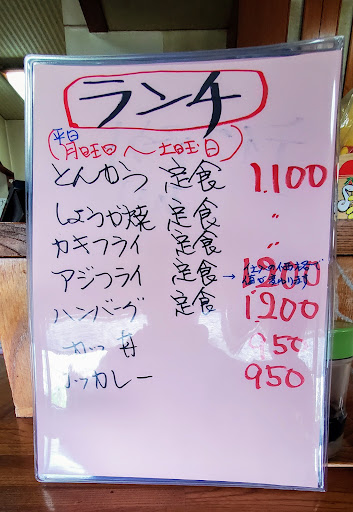 ランチ
平日
(月曜日〜土曜日)
とんかつ 定食 1,100
しょうが焼 定食 〃
カキフライ 定食 〃
アジフライ 定食 → 仕入の価格で 値段変わります 1200
ハンバーグ 定食 1,200
カツ丼 950
カツカレー 950